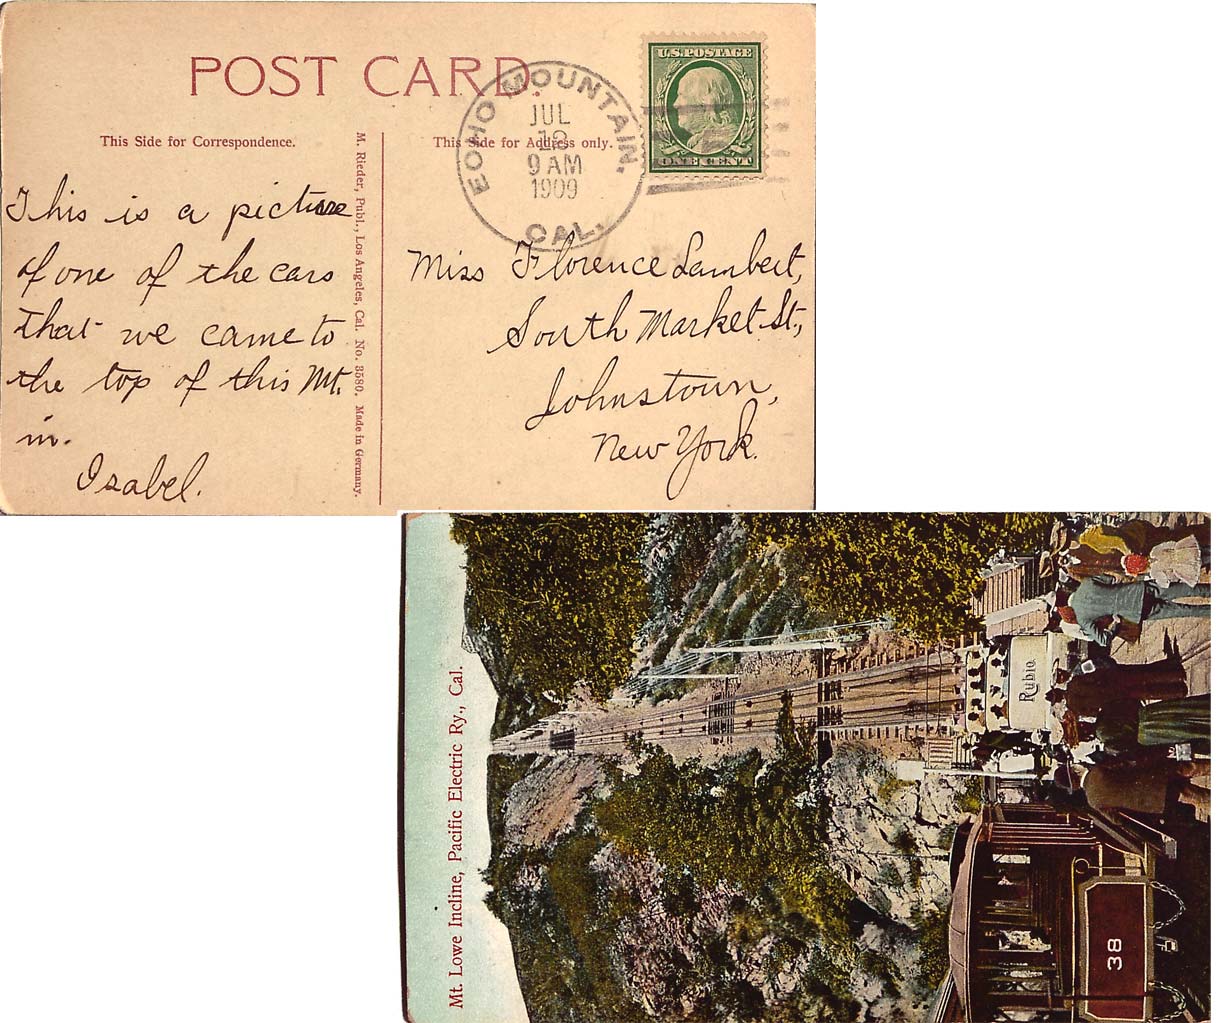 POST CARD.
ECHO MOUNTAIN.
JUL
9 AM
1909
CAL.
U.S. POSTAGE
ONE CENT
This Side for Correspondence.
This Side for Address only.
M. Rieder, Publ., Los Angeles, Cal. No. 3580. Made in Germany.
This is a picture
of one of the cars
that we came to
the top of this Mt.
in.
Isabel.
Miss Florence Lambert,
South Market St.,
Johnstown,
New York.
Mt. Lowe Incline, Pacific Electric Ry., Cal.
Rubio
38